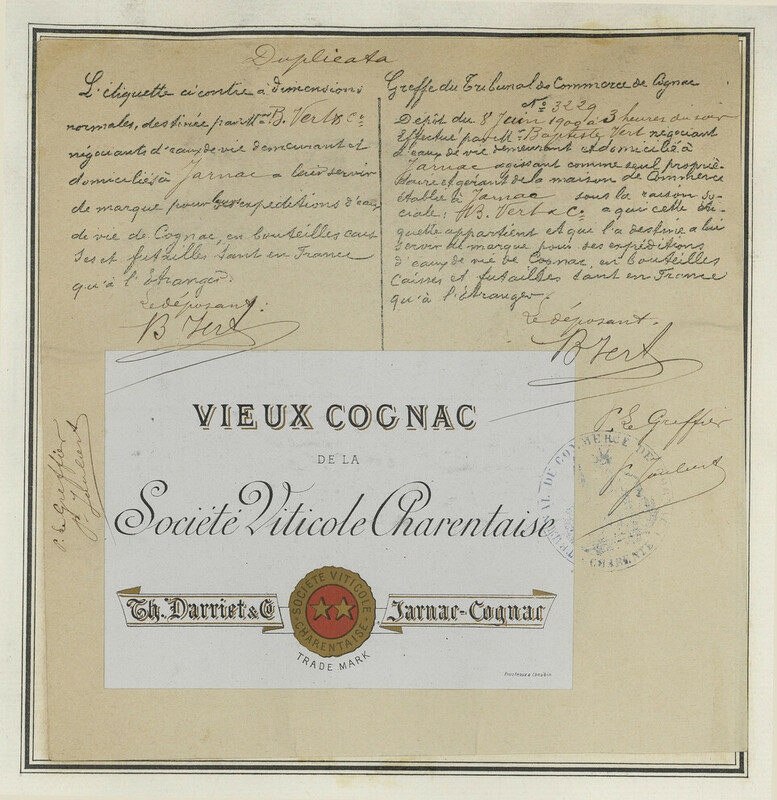 Duplicata
L'étiquette ci contre à dimensions
normales, destinée par Mr B. Vert & Co
négociants d'eaux de vie demeurant et
domiciliés à Jarnac a leur servir
de marque pour leurs expéditions d'eaux
de vie de Cognac, en bouteilles cais
ses et futailles tant en France
qu'à l'étranger.
Le déposant:
B Vert
Greffe du Tribunal de Commerce de Cognac
No 3229
Dépôt du 8 Juin 1909 à 3 heures du soir
Effectué par Mr Baptiste Vert négociant
d'eaux de vie demeurant et domicilié à
Jarnac agissant comme seul proprié-
taire et gérant de la maison de Commerce
établie à Jarnac sous la raison so-
ciale: B. Vert & Co a qui cette éti-
quette appartient et que l'a destiné a lui
servir de marque pour ses expéditions
d'eaux de vie de Cognac, en bouteilles
caisses et futailles tant en France
qu'à l'étranger.
Le déposant.
B Vert
P. Le Greffier
P. Le Greffier
VIEUX COGNAC
DE LA
Société Viticole Charentaise
Th. Darriet & Co
SOCIÉTÉ VITICOLE
CHARENTAISE
Jarnac-Cognac
TRADE MARK
TRIBUNAL DU COMMERCE DE
CHARENTE